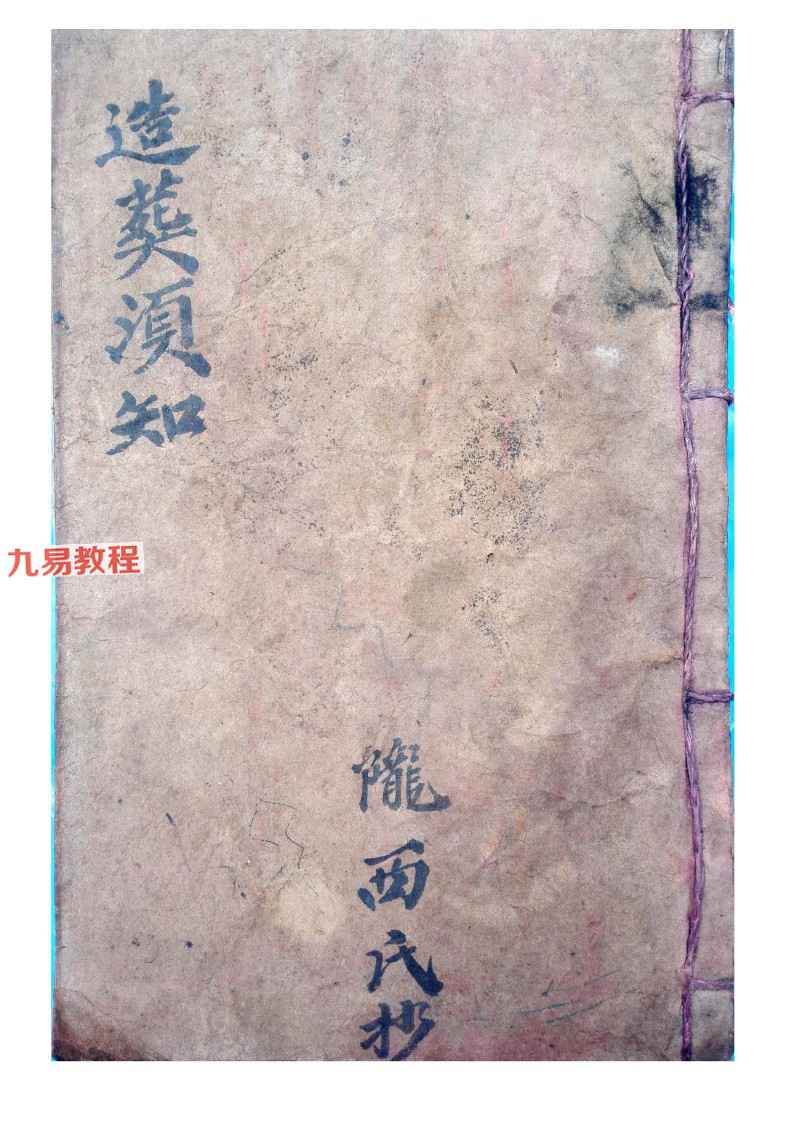 造葬須知
九易教程
隴西氏抄